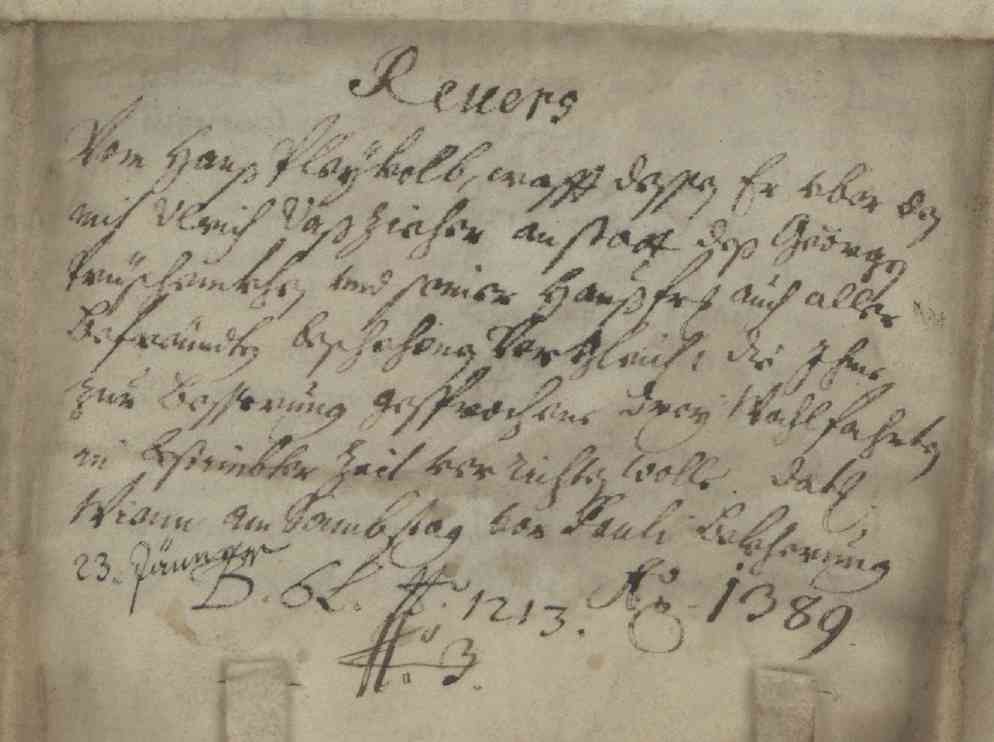 Reuers
Vom Hanß Pleykolb, crafft dessen Er vber den
mit Ulrich anstatt deß Georgen
vnd seiner Haußfr: auch aller
Befreundten beschehenen Vergleich, die Ihme
zur Besserung gesprochene drey Wahlfahrten
in bestimbter Zeit verrichten wolle. Dat:
Wienn am Sambstag vor Pauli Bekherung
23. Jänner
D. 62. ff: 1213. Ao. 1389.
No. 3.